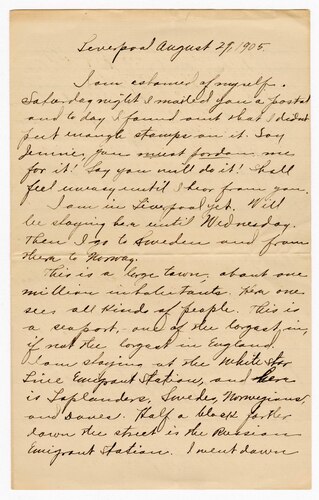 Liverpool August 29, 1905
I am ashamed of myself.
Saturday night I mailed you a postal
and to day I found out that I didn't
put enough stamps on it. Say
Jennie, you must pardon me
for it! Say you will do it! Shall
feel uneasy until I hear from you.
I am in Liverpool yet. Will
be staying here until Wednesday.
Then I go to Sweden and from
there to Norway.
This is a large town, about one
million inhabitants. Here one
sees all kinds of people. This is
a seaport, one of the largest in,
if not the largest in England.
I am staying at the White Star
Line Emigrant Station, and here
is Laplanders, Swedes, Norwegians,
and Danes. Half a block farther
down the street is the Russian
Emigrant Station. I went down